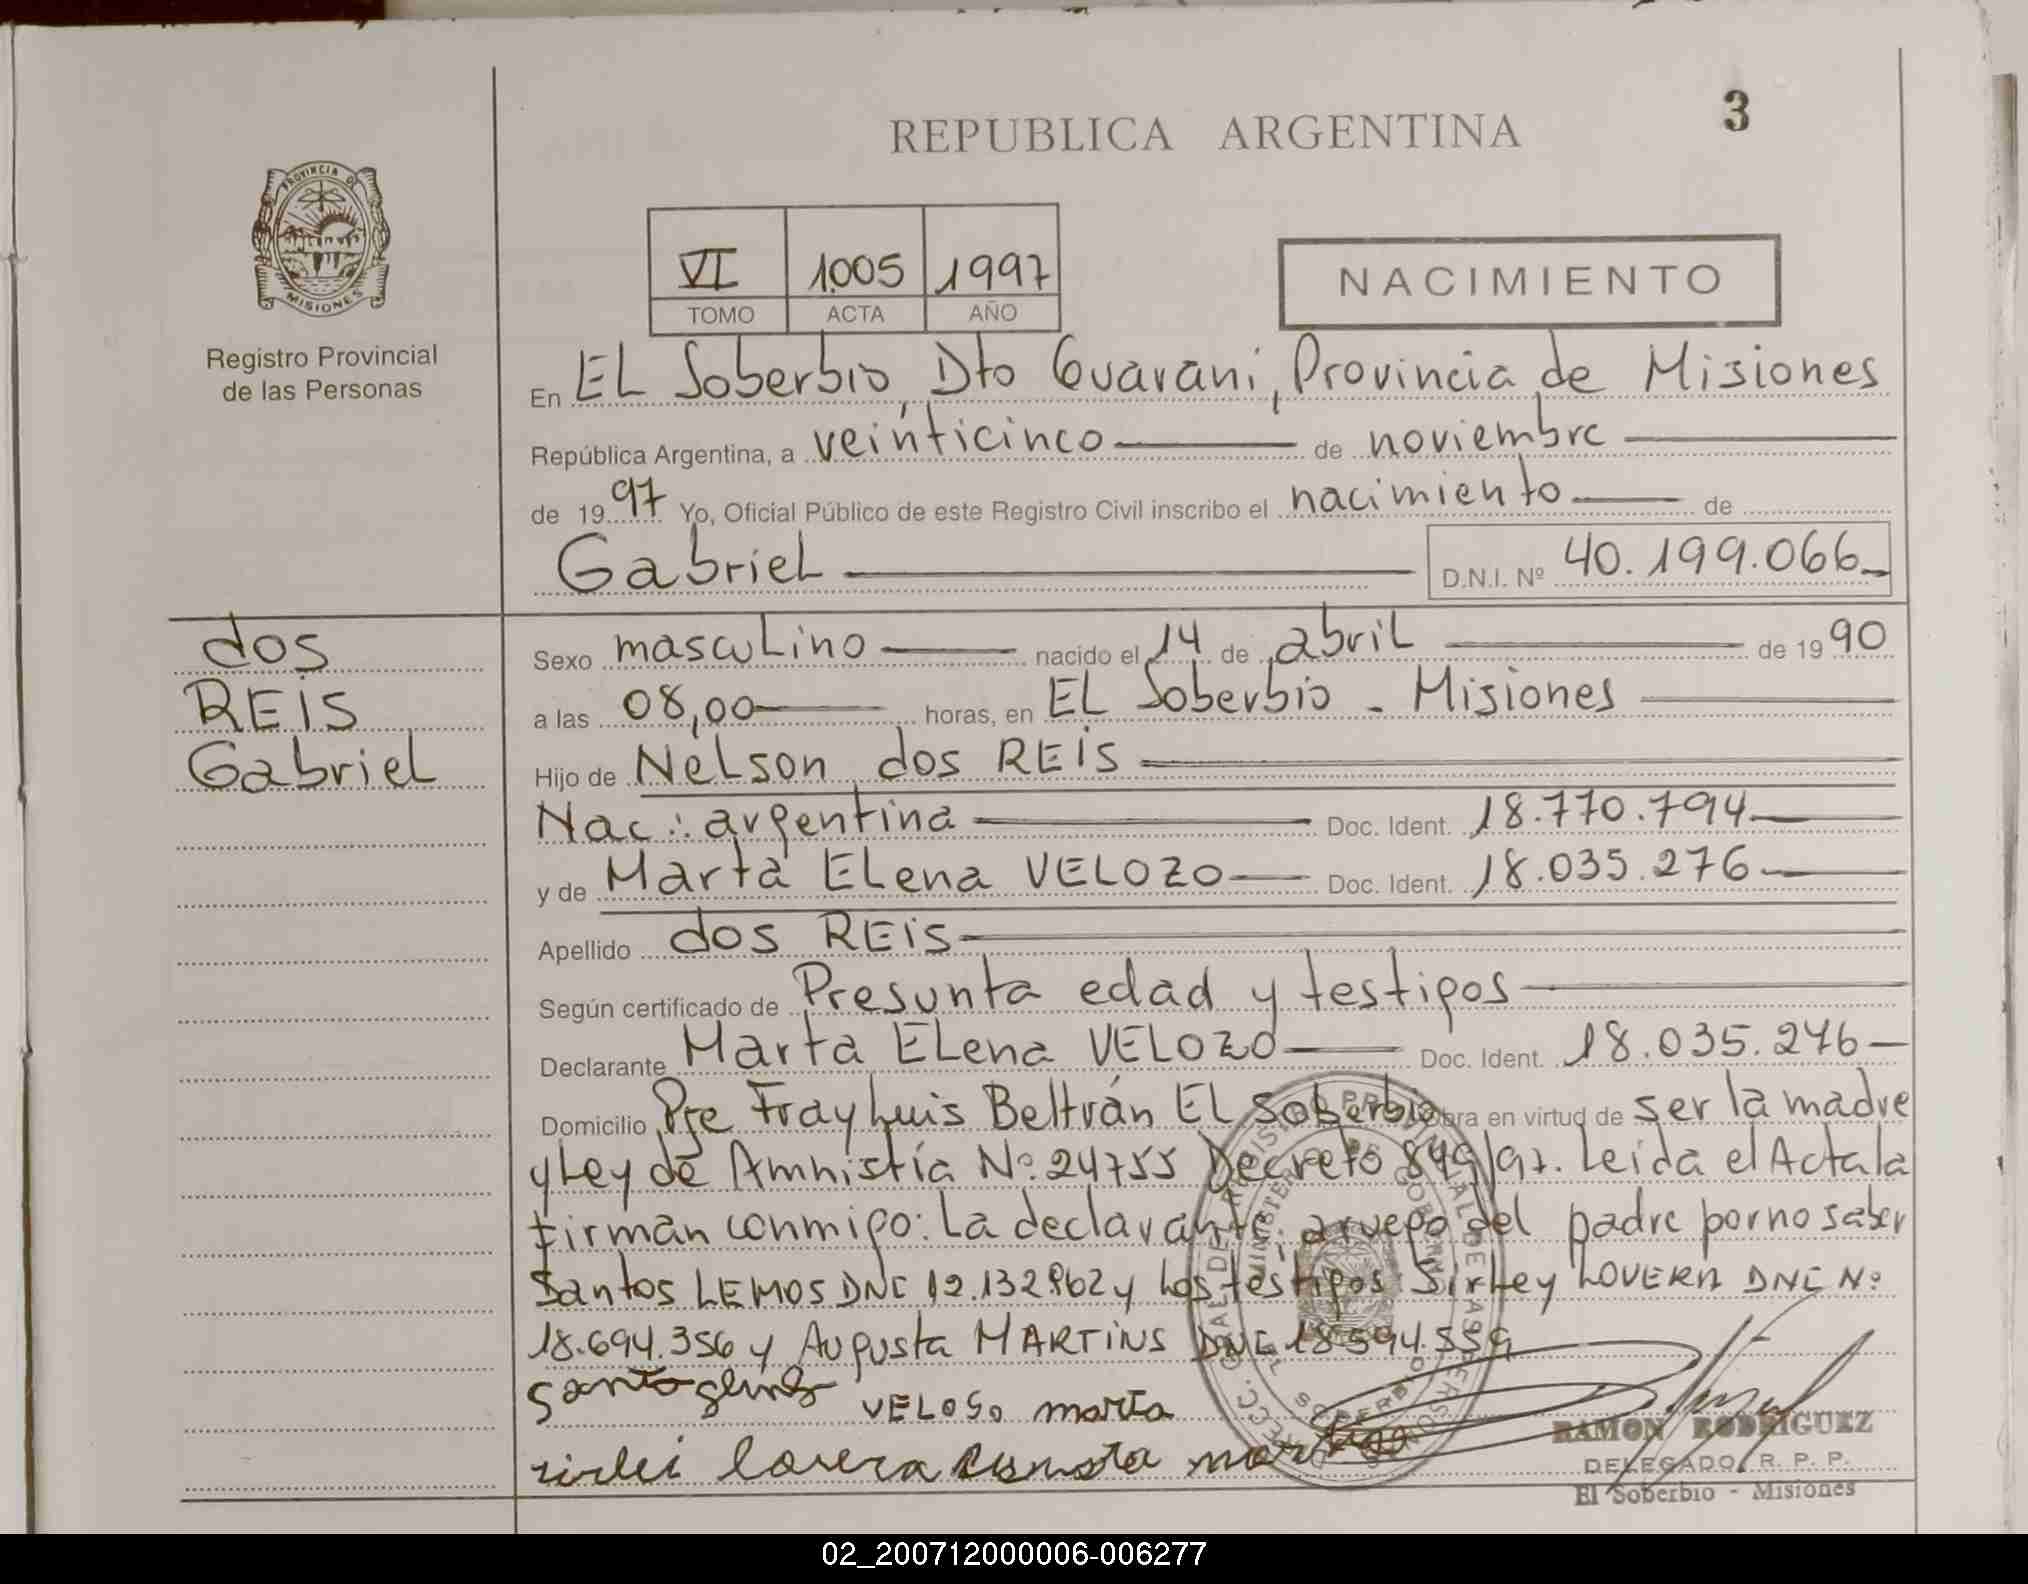 3
REPUBLICA ARGENTINA
PROVINCIA DE
MISIONES
Registro Provincial
de las Personas
VI 1.005 1997
TOMO ACTA AÑO
NACIMIENTO
En EL Soberbio, Dto Guaraní, Provincia de Misiones
República Argentina, a veinticinco de noviembre
de 1997 Yo, Oficial Público de este Registro Civil inscribo el nacimiento de
Gabriel D.N.I. Nº 40.199.066
dos
REiS
Gabriel
Sexo masculino nacido el 14 de abril de 1990
a las 08,00 horas, en EL Soberbio - Misiones
Hijo de Nelson dos REiS
Nac: argentina Doc. Ident. 18.770.794
y de Marta Elena VELOZO Doc. Ident. 18.035.276
Apellido dos REiS
Según certificado de Presunta edad y testigos
Declarante Marta Elena VELOZO Doc. Ident. 18.035.276
Domicilio Pje Fray Luis Beltrán EL Soberbio Obra en virtud de ser la madre
y Ley de Amnistía Nº 24755 Decreto 849/97. Leída el Acta la
firman conmigo: La declarante, a ruego del padre por no saber
Santos LEMOS DNI 12.132.862 y Los testigos Sirley LOVERA DNI Nº
18.694.356 y Augusta MARTiNS DNI 18.594.559
VELOSO marta
sirlei lovera
RAMON RODRIGUEZ
DELEGADO R. P. P.
El Soberbio - Misiones
02_200712000006-006277